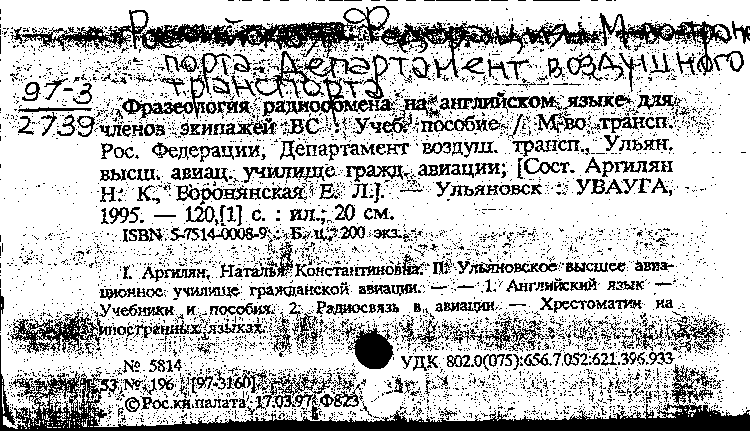 Российская Федерация. М-во транс
порта. Департамент воздушного
транспорта
97-3
2739
Фразеология радиообмена на английском языке для
членов экипажей ВС : Учеб. пособие / М-во трансп.
Рос. Федерации, Департамент воздуш. трансп., Ульян.
высш. авиац. училище гражд. авиации; [Сост. Аргилян
Н. К., Воронянская Е. Л.]. — Ульяновск : УВАУГА,
1995. — 120,[1] с. : ил.; 20 см.
ISBN 5-7514-0008-9 : Б. ц., 200 экз.
I. Аргилян, Наталья Константиновна. II. Ульяновское высшее авиа-
ционное училище гражданской авиации. — — 1. Английский язык —
Учебники и пособия. 2. Радиосвязь в авиации — Хрестоматии на
иностранных языках.
№ 5814
УДК 802.0(075):656.7.052:621.396.933
53 № 196 [97-3160]
© Рос.кн.палата 17.03.97 Ф823